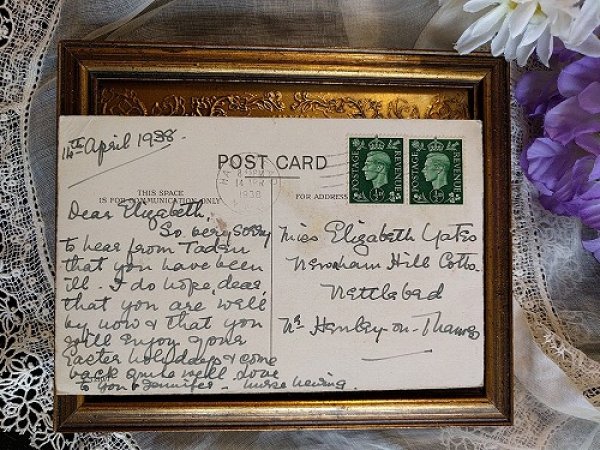 14th April 1938.
POST CARD
THIS SPACE
IS FOR COMMUNICATION ONLY
FOR ADDRESS
14 AP
1938
POSTAGE
REVENUE
½D
POSTAGE
REVENUE
½D
Dear Elizabeth,
So very sorry
to hear from
that you have been
ill. I do hope, dear,
that you are well
by now & that you
will enjoy your
Easter holidays & come
back quite well. Love
to you & Jennifer. Nurse
Miss Elizabeth Yates
Newnham Hill Cotts.
Nettlebed
Nr Henley-on-Thames